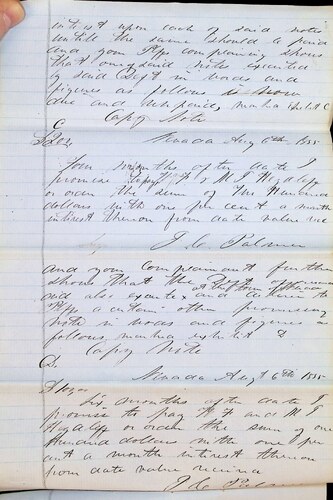 interest upon each of said notes
untill the same should be paid
and your Pffs complaining shows
that one of said notes executed
by said Deft in words and
figures as follows is now
due and unpaid, marked Exbt C
Copy Note
C
$200, Nevada Aug 6th 1855
Four months after date I
promise to pay W T & M J
or order the sum of Two Hundred
dollars with one per cent a month
interest thereon from date value rec
J C Palmer
and your Complainant further
shows that the Deft
did also execute and deliver to
Pffs a certain other promissory
note in words and figures as
follows, marked exhibit D
Copy Note
D.
$100 Nevada Augt 6th 1855
Six months after date I
promise to pay W T and M J
or order the sum of one
Hundred dollars with one per
cent a month interest thereon
from date value received
J C Palmer